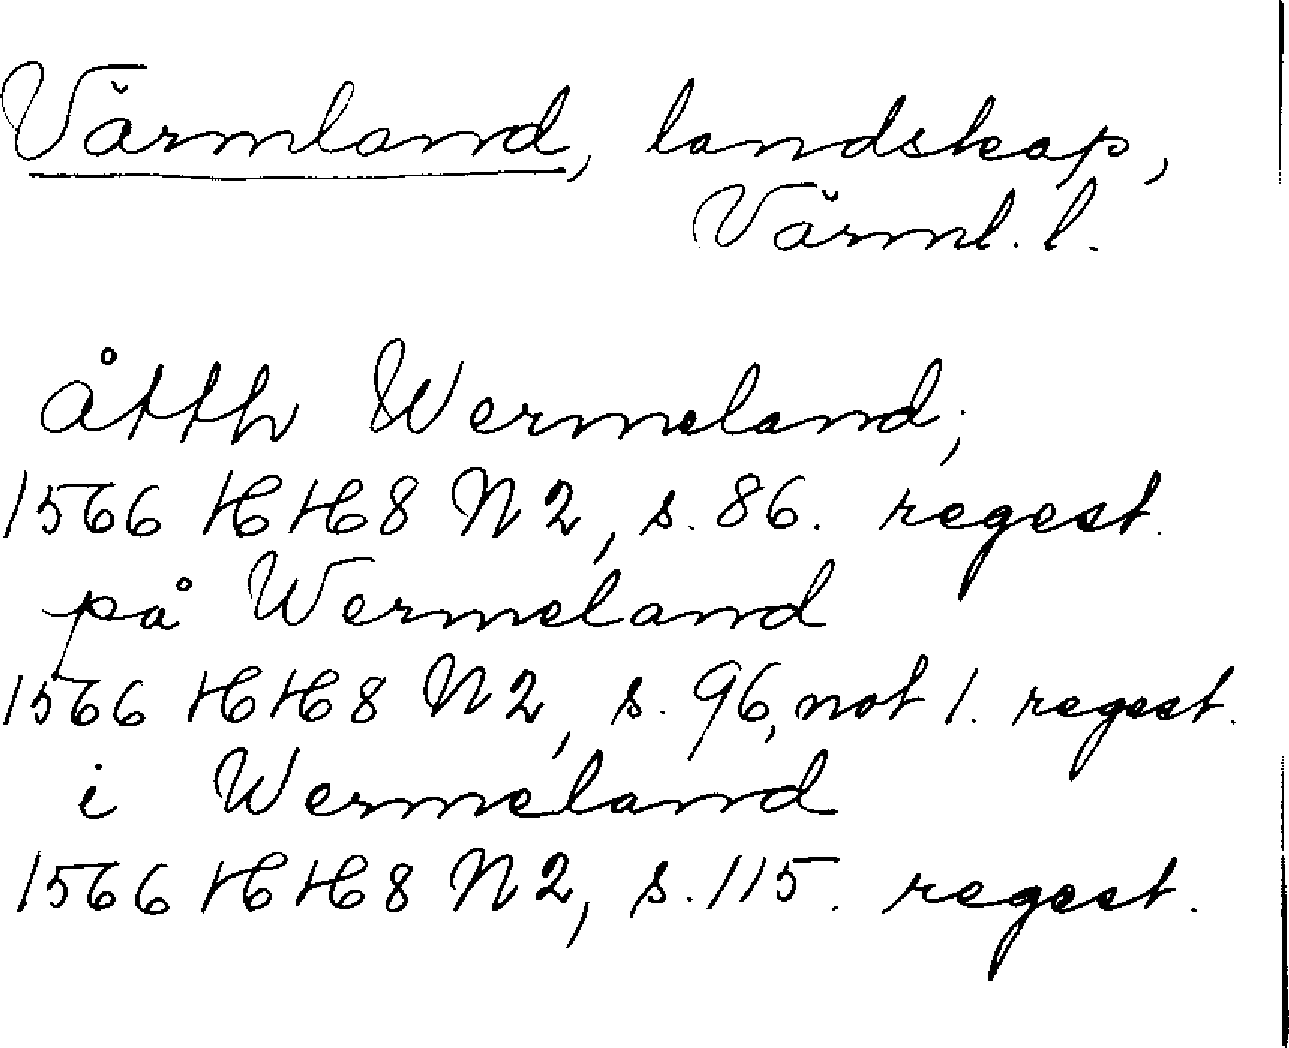 Värmland, landskap,
Värml. l.
åtth Wermeland;
1566 HH8 N2, s. 86. regest.
på Wermeland
1566 HH8 N2, s. 96, not 1. regest.
i Wermeland
1566 HH8 N2, s. 115. regest.